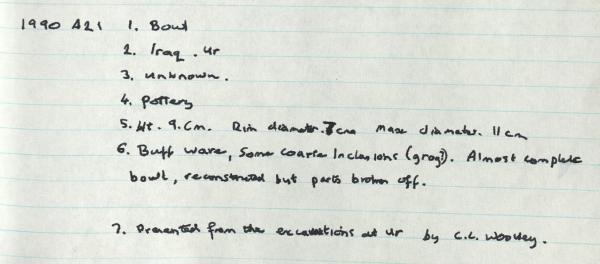 1990 A21 1. Bowl
2. Iraq. Ur
3. unknown.
4. Pottery
5. Ht. 9.cm. Rim diameter. 7cm max diameter. 11cm
6. Buff ware, some coarse inclusions (grog?). Almost complete
bowl, reconstructed but parts broken off.
7. Presented from the excavations at Ur by C.L. Woolley.